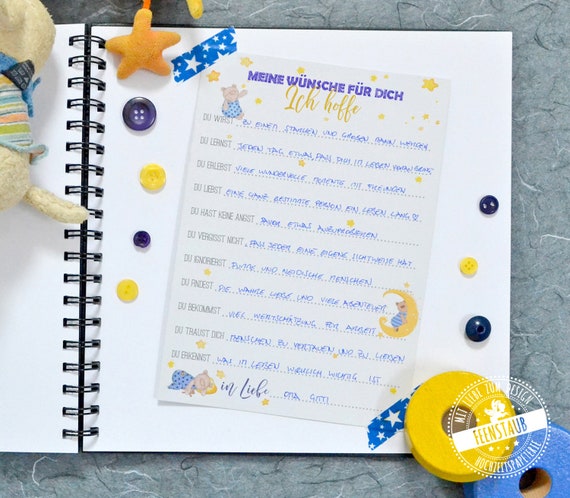 MEINE WÜNSCHE FÜR DICH
Ich hoffe
DU WIRST ZU EINEM STARKEN UND GROßEN MANN WERDEN
DU LERNST JEDEN TAG ETWAS, DASS DICH IM LEBEN VORAN BRINGT
DU ERLEBST VIELE WUNDERVOLLE MOMENTE MIT
DU LIEBST EINE GANZ BESTIMMTE PERSON EIN LEBEN LANG
DU HAST KEINE ANGST DAVOR ETWAS AUSZUPROBIEREN
DU VERGISST NICHT, DASS JEDER EINE EIGENE SICHTWEISE HAT
DU IGNORIERST DUMME UND NEIDISCHE MENSCHEN
DU FINDEST DIE WAHRE LIEBE UND VIELE ABENTEUER
DU BEKOMMST VIEL WERTSCHÄTZUNG FÜR ARBEIT
DU TRAUST DICH MENSCHEN ZU VERTRAUEN UND ZU LIEBEN
DU ERKENNST WAS IM LEBEN WIRKLICH WICHTIG IST
in Liebe OMA GITTI
MIT LIEBE ZUM DESIGN
FEENSTAUB
HOCHZEITSPAPETERIE